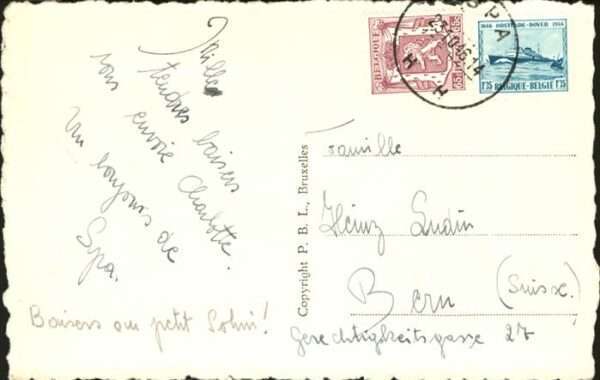 Mille
tendres baisers
vous envoie Charlotte.
Un bonjour de
Spa.
Baisers au petit
Copyright P. B. L., Bruxelles
BELGIQUE
SPA
1846 OOSTENDE-DOVER 1946
1F75 BELGIQUE-BELGIË 1F75
Famille
Heinz
Bern (Suisse.)
Gerechtigkeitsgasse 27